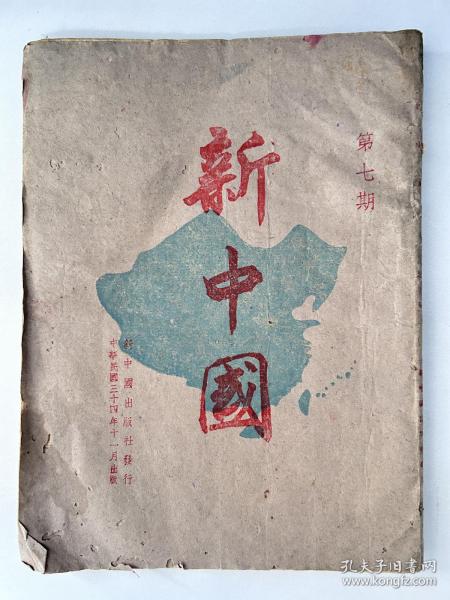 第七期
新中國
新中國出版社發行
中華民國三十四年十一月出版
孔夫子旧书网
www.kongfz.com